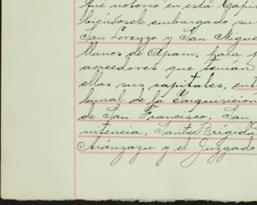 fué notorio en esta Capi
biéndosele embargado su
San Lorenzo y San Migue
llanos de Apam, para
acreedores que tenían
ellas sus capitales, ent
bunal de la Inquisicion
de San Francisco, San
ntencia, Santa Brigida
Aranzazu y el Juzgado